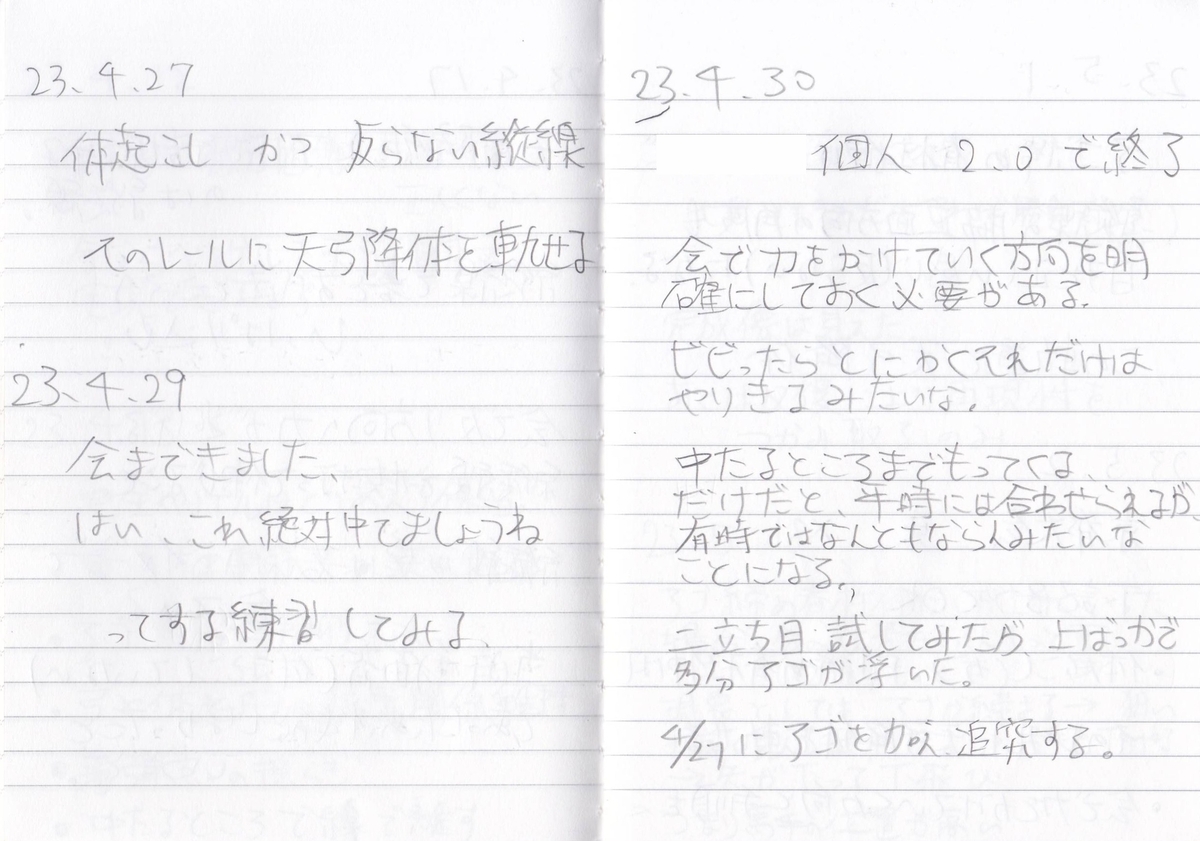 23.4.27
体起こし かつ 反らない縦線
そのレールに天弓降体を軌せる
23.4.29
会まできました、
はい、これ絶対中てましょうね
ってする練習してみる、
23.4.30
個人 2.0で終了
会で力をかけていく方向を明
確にしておく必要がある、
ビビったらとにかくそれだけは
やりきるみたいな。
中たるところまでもってくる、
だけだと、平時には合わせられるが
有時ではなんともならんみたいな
ことになる。
二立ち目試してみたが、上ばっかで
多分アゴが浮いた。
4/27にアゴを加え追究する。